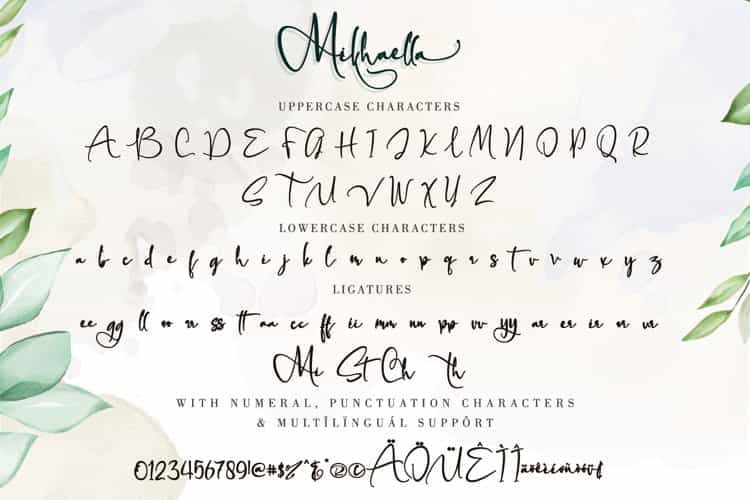 Mikhaella
UPPERCASE CHARACTERS
A B C D E F G H I J K L M N O P Q R
S T U V W X Y Z
LOWERCASE CHARACTERS
a b c d e f g h i j k l m n o p q r s t v v w x y z
LIGATURES
ee gg ll oo rr ss tt aa cc ff ii mm nn pp vv yy ar er ir or ur
Mi St Ch Th
WITH NUMERAL, PUNCTUATION CHARACTERS
& MULTÌLÏNGUÁL SUPPÔRT
0123456789!@#$%^&*®©ÄÖÜÊÌÎ